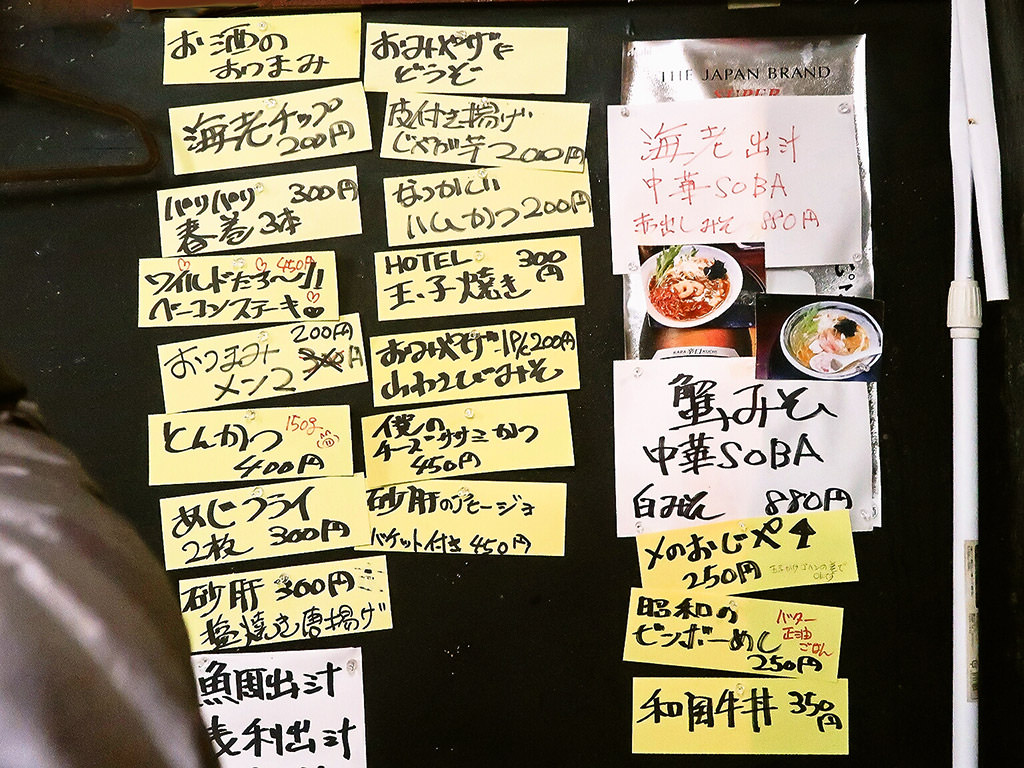 お酒の
おつまみ
海老チップ
200円
パリパリ 300円
春巻3本
450円
ワイルドだろ〜!!
ベーコンステーキ
200円
おつまみ
メンマ
とんかつ 150g
400円
あじフライ
2枚 300円
砂肝 300円
塩焼き唐揚げ
魚同出汁
浅利出汁
おみやげに
どうぞ
皮付き揚げ
じゃが芋 200円
なつかしい
ハムかつ 200円
HOTEL 300円
玉子焼き
おみやげ 1P 200円
山わさびみそ
僕の
チーズササミかつ
450円
砂肝のアヒージョ
バケット付き 450円
THE JAPAN BRAND
SUPER
海老出汁
中華SOBA
赤出しみそ 880円
KARA 辛口 KUCHI
蟹みそ
中華SOBA
白みそ 880円
〆のおじや↑
250円
昭和の
ビンボーめし
バター
正油
ごはん
250円
和風牛丼 350円